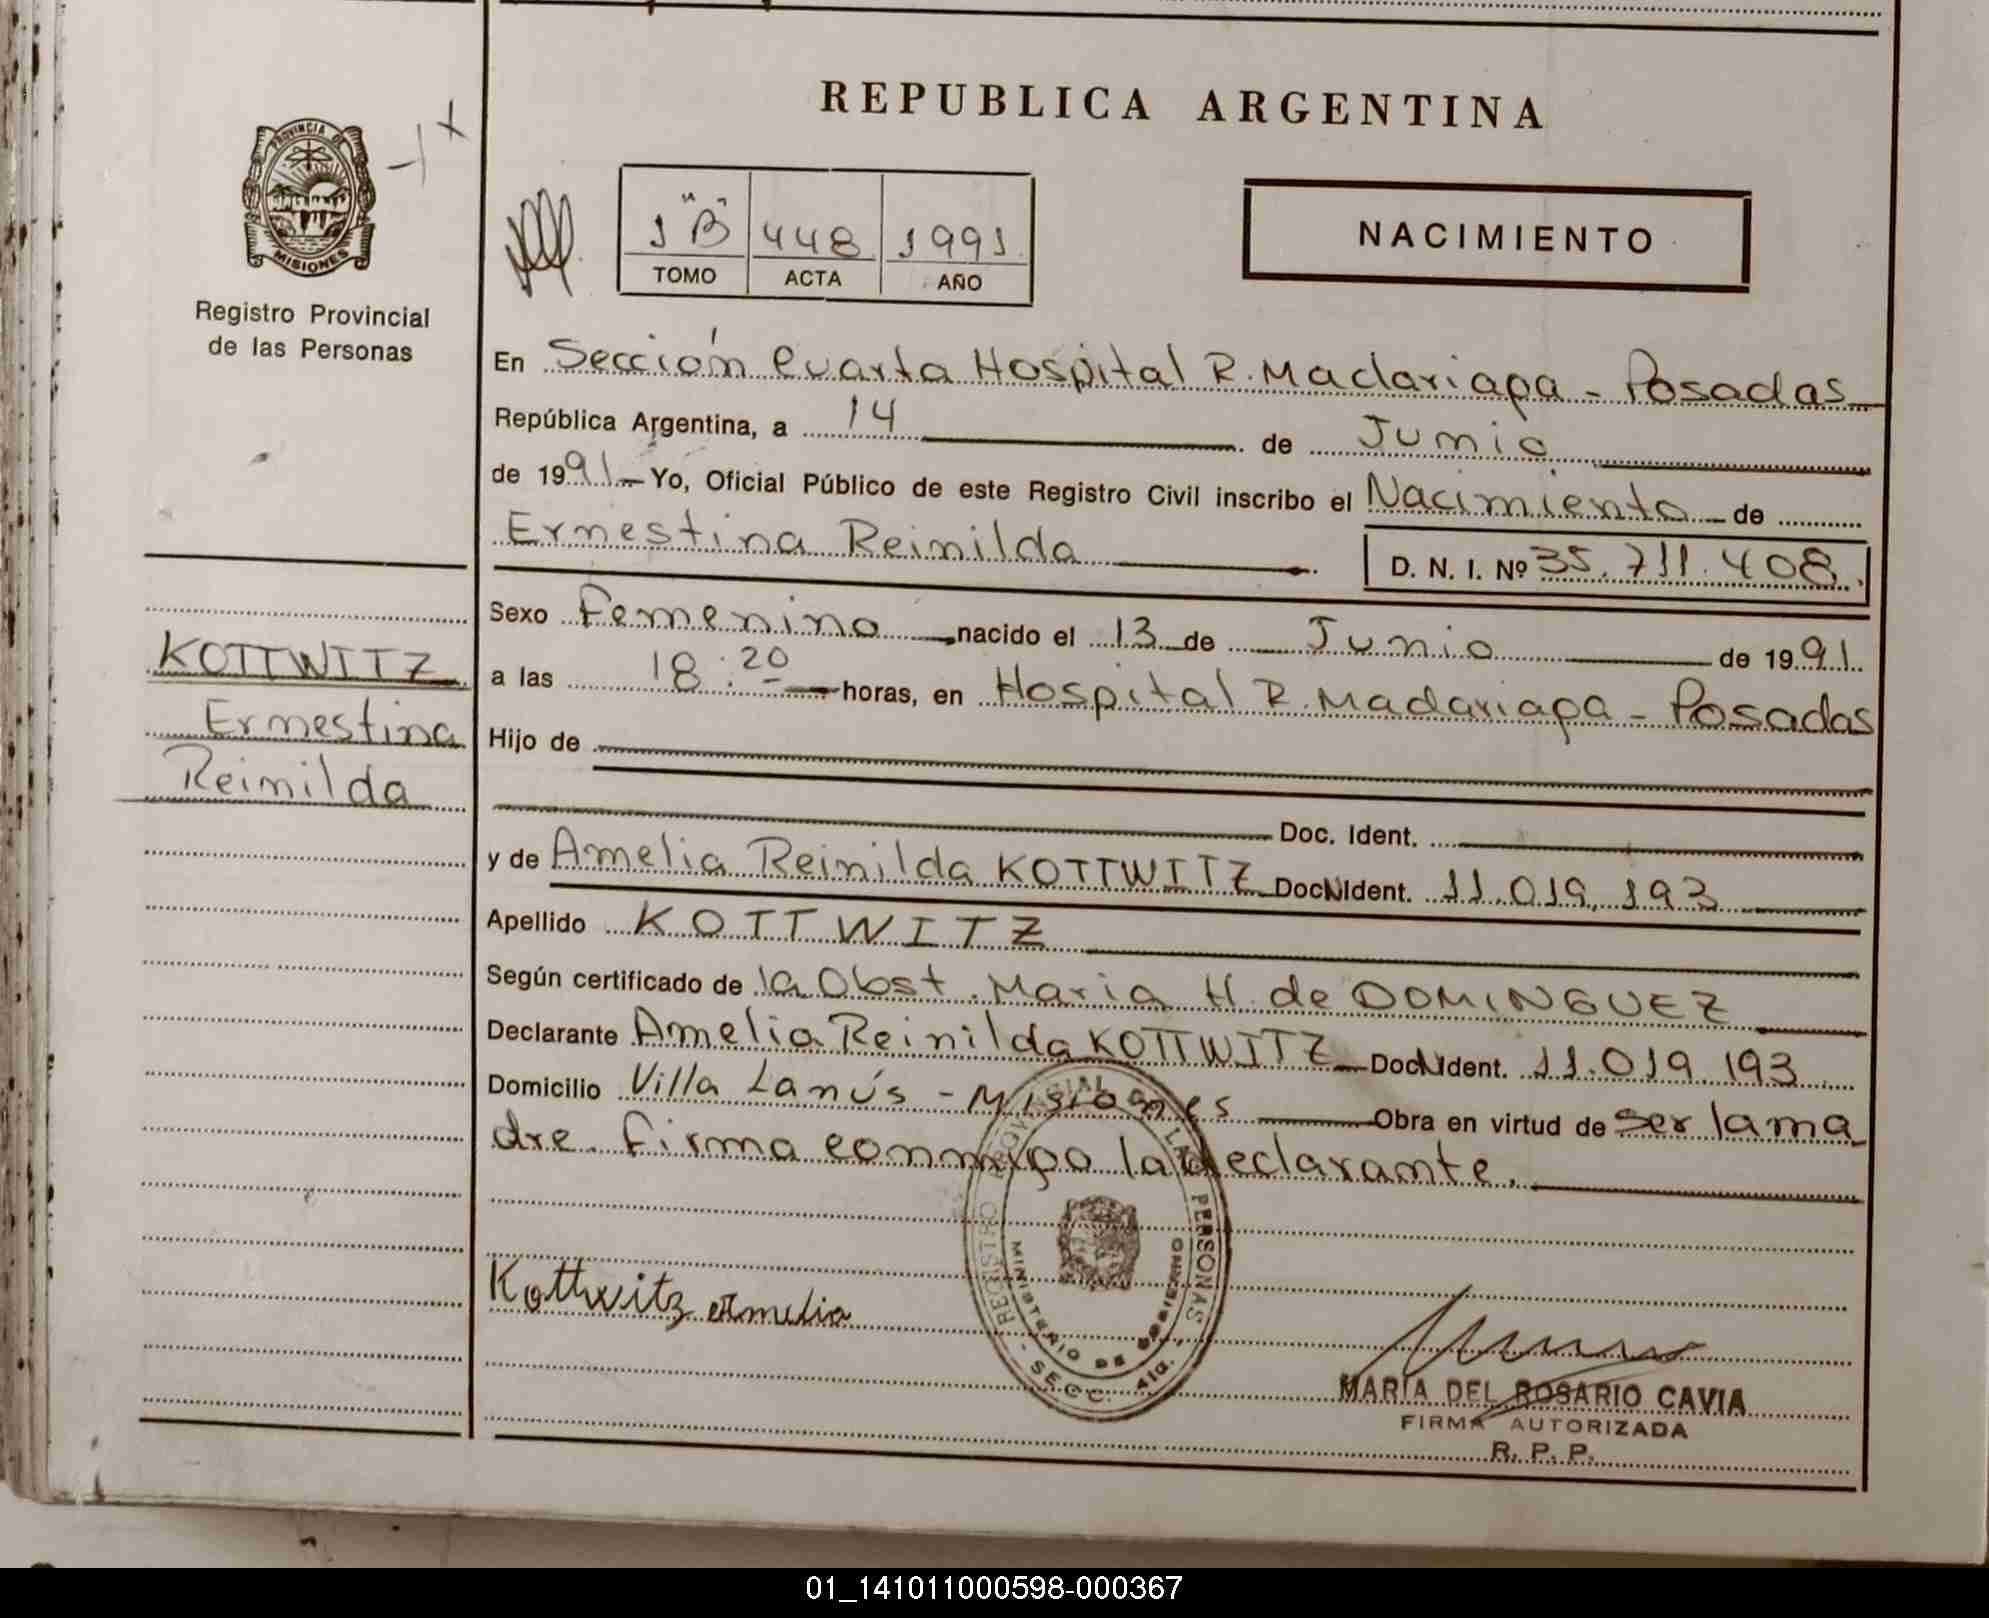 REPUBLICA ARGENTINA
PROVINCIA DE
MISIONES
Registro Provincial
de las Personas
1 "B" 448 1991
TOMO ACTA AÑO
NACIMIENTO
En Sección Cuarta Hospital R. Madariaga - Posadas
República Argentina, a 14 de Junio
de 1991 Yo, Oficial Público de este Registro Civil inscribo el Nacimiento de
Ernestina Reinilda D. N. I. Nº 35.711.408
Sexo Femenino nacido el 13 de Junio de 1991
a las 18:20 horas, en Hospital R. Madariaga - Posadas
KOTTWITZ
Ernestina
Reinilda
Hijo de
Doc. Ident.
y de Amelia Reinilda KOTTWITZ Doc. Ident. 11.019.193
Apellido KOTTWITZ
Según certificado de la Obst. Maria H. de DOMINGUEZ
Declarante Amelia Reinilda KOTTWITZ Doc. Ident. 11.019.193
Domicilio Villa Lanús - Misiones Obra en virtud de ser la ma
dre. Firma conmigo la declarante.
REGISTRO PROVINCIAL DE LAS PERSONAS
MINISTERIO DE GOBIERNO
- SECC. 4ta. -
Kottwitz Amelia
MARIA DEL ROSARIO CAVIA
FIRMA AUTORIZADA
R. P. P.
01_141011000598-000367